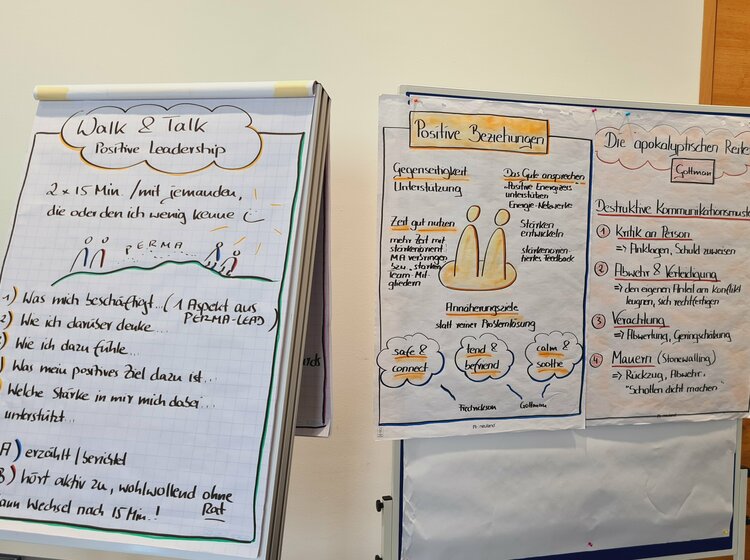 Walk & Talk
Positive Leadership
2 x 15 Min. / mit jemanden,
die oder den ich wenig kenne
PERMA
1) Was mich beschäftigt... (1 Aspekt aus
PERMA-LEAD)
2) Wie ich darüber denke...
) Wie ich dazu fühle...
) Was mein positives Ziel dazu ist...
Welche Stärke in mir mich dabei
unterstützt...
A) erzählt / berichtet
B) hört aktiv zu, wohlwollend ohne
Rat
Wechsel nach 15 Min. !
Positive Beziehungen
Gegenseitigkeit
Unterstützung
Zeit gut nutzen
mehr Zeit mit
stärkenorient.
MA verbringen
bzw. starken
Team-Mit-
gliedern
Das Gute ansprechen
Positive Energizers
unterstützen
Energie-Netzwerke
Stärken
entwickeln
stärkenorien-
tiertes Feedback
Annäherungsziele
statt reiner Problemlösung
safe &
connect
tend &
befriend
calm &
soothe
Fredrickson
Gottman
neuland
Die apokalyptischen Reite
Gottman
Destruktive Kommunikationsmuste
1 Kritik an Person
⇒ Anklagen, Schuld zuweisen
2 Abwehr & Verteidigung
⇒ den eigenen Anteil am Konflikt
leugnen, sich rechtfertigen
3 Verachtung
⇒ Abwertung, Geringschätzung
4 Mauern (Stonewalling)
⇒ Rückzug, Abwehr,
"Schotten dicht machen"
neuland
ards